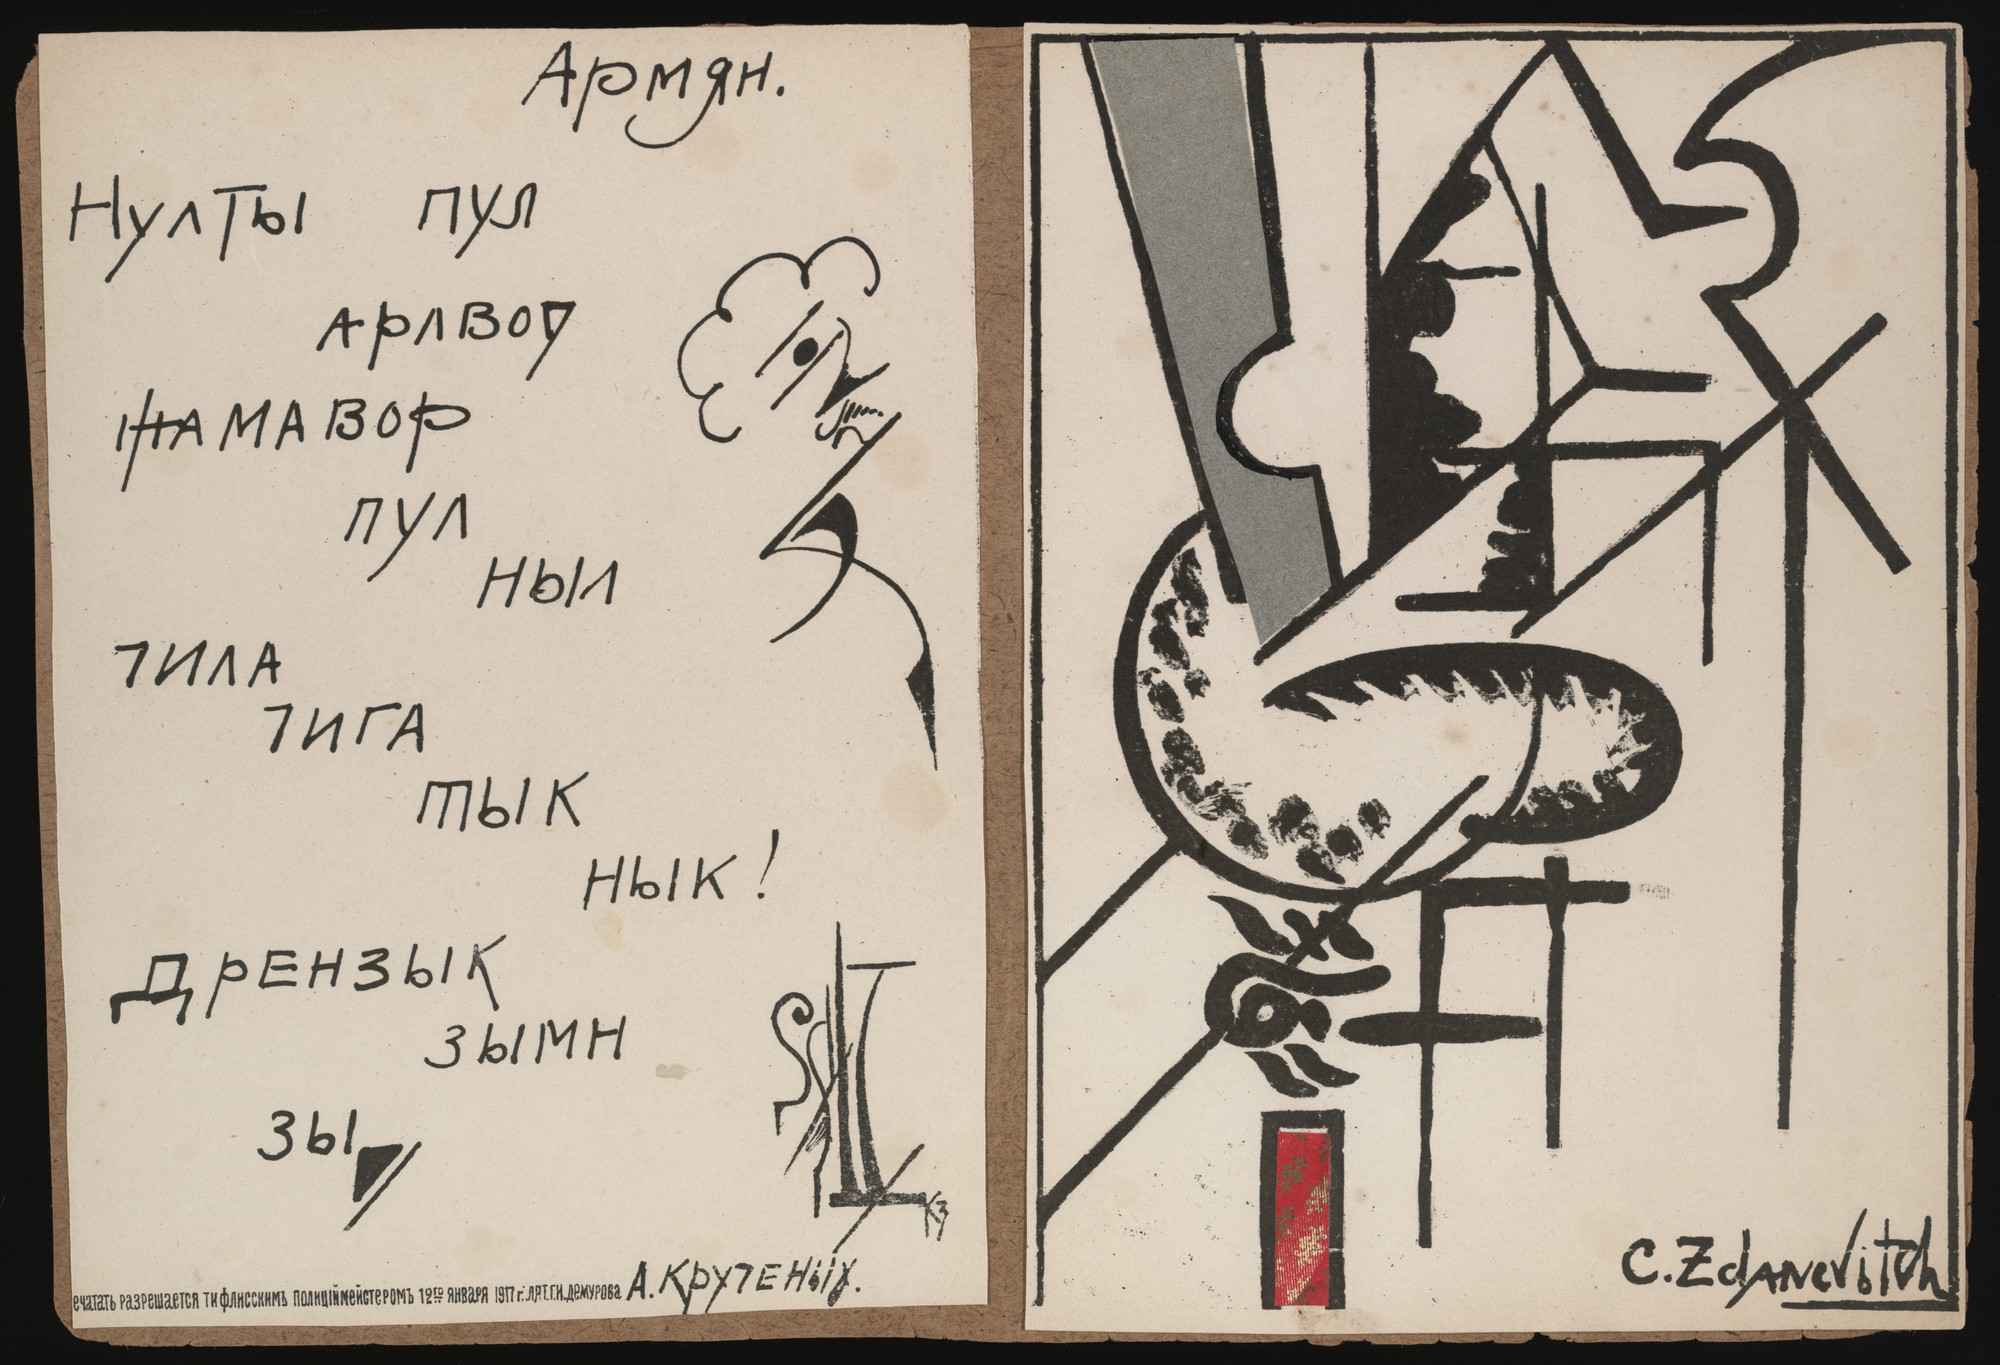 Армян.
Нулты пул
арлвоч
жамавор
пул
ныл
чила
чига
тык
нык!
Дрензык
зымн
зы
КЗ
ечатать разрешается тифлисскимъ полиціймейстеромъ 12го января 1917 г. лят. Г.И. Демурова А. Крученыіх.
C. Zdanevitch